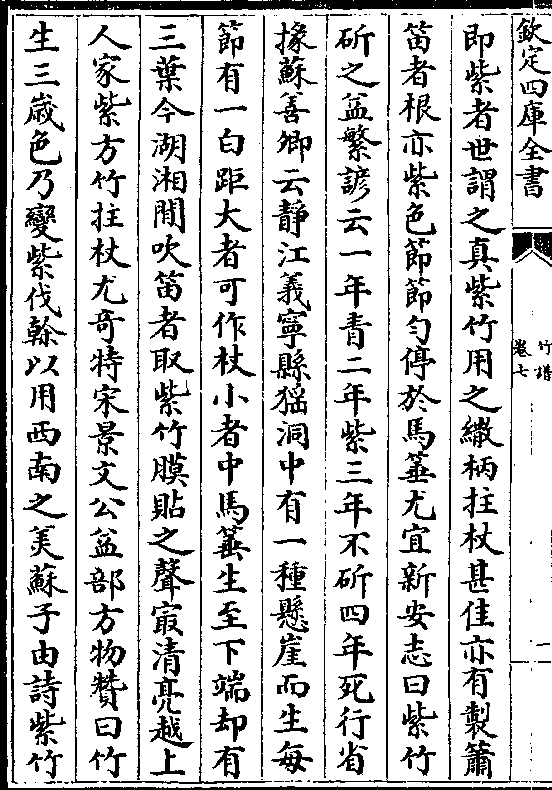 欽定四庫全書
竹譜
卷七
二
即紫者世謂之真紫竹用之繖柄拄杖甚佳亦有製簫
笛者根亦紫色節節勻停於馬箠尤宜新安志曰紫竹
斫之益繁諺云一年青二年紫三年不斫四年死行省
掾蘇善卿云靜江義寧縣猺洞中有一種懸崖而生每
節有一白距大者可作杖小者中馬箠生至下端却有
三葉今湖湘間吹笛者取紫竹膜貼之聲㝡清亮越上
人家紫方竹拄杖尤竒特宋景文公益部方物贊曰竹
生三歲色乃變紫伐榦以用西南之美蘇子由詩紫竹